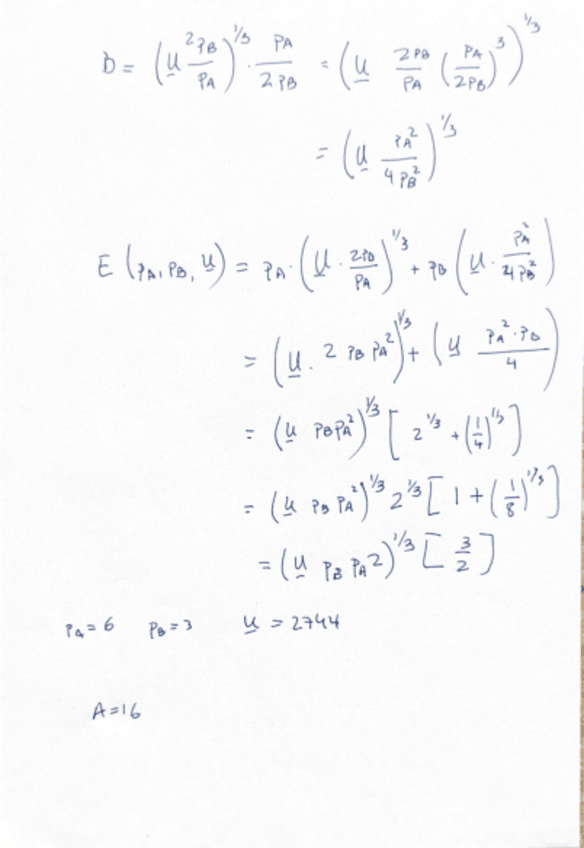 D = (u 2PB/PA)^1/3 · PA/2PB = (u 2PB/PA (PA/2PB)^3)^1/3
= (u PA^2/4PB^2)^1/3
E (PA, PB, u) = PA · (u · 2PB/PA)^1/3 + PB (u · PA^2/4PB^2)
= (u · 2 PB PA^2)^1/3 + (u PA^2 · PB/4)
= (u PB PA^2)^1/3 [2^1/3 + (1/4)^1/3]
= (u PB PA^2)^1/3 2^1/3 [1 + (1/8)^1/3]
= (u PB PA 2)^1/3 [3/2]
PA = 6 PB = 3 u = 2744
A = 16